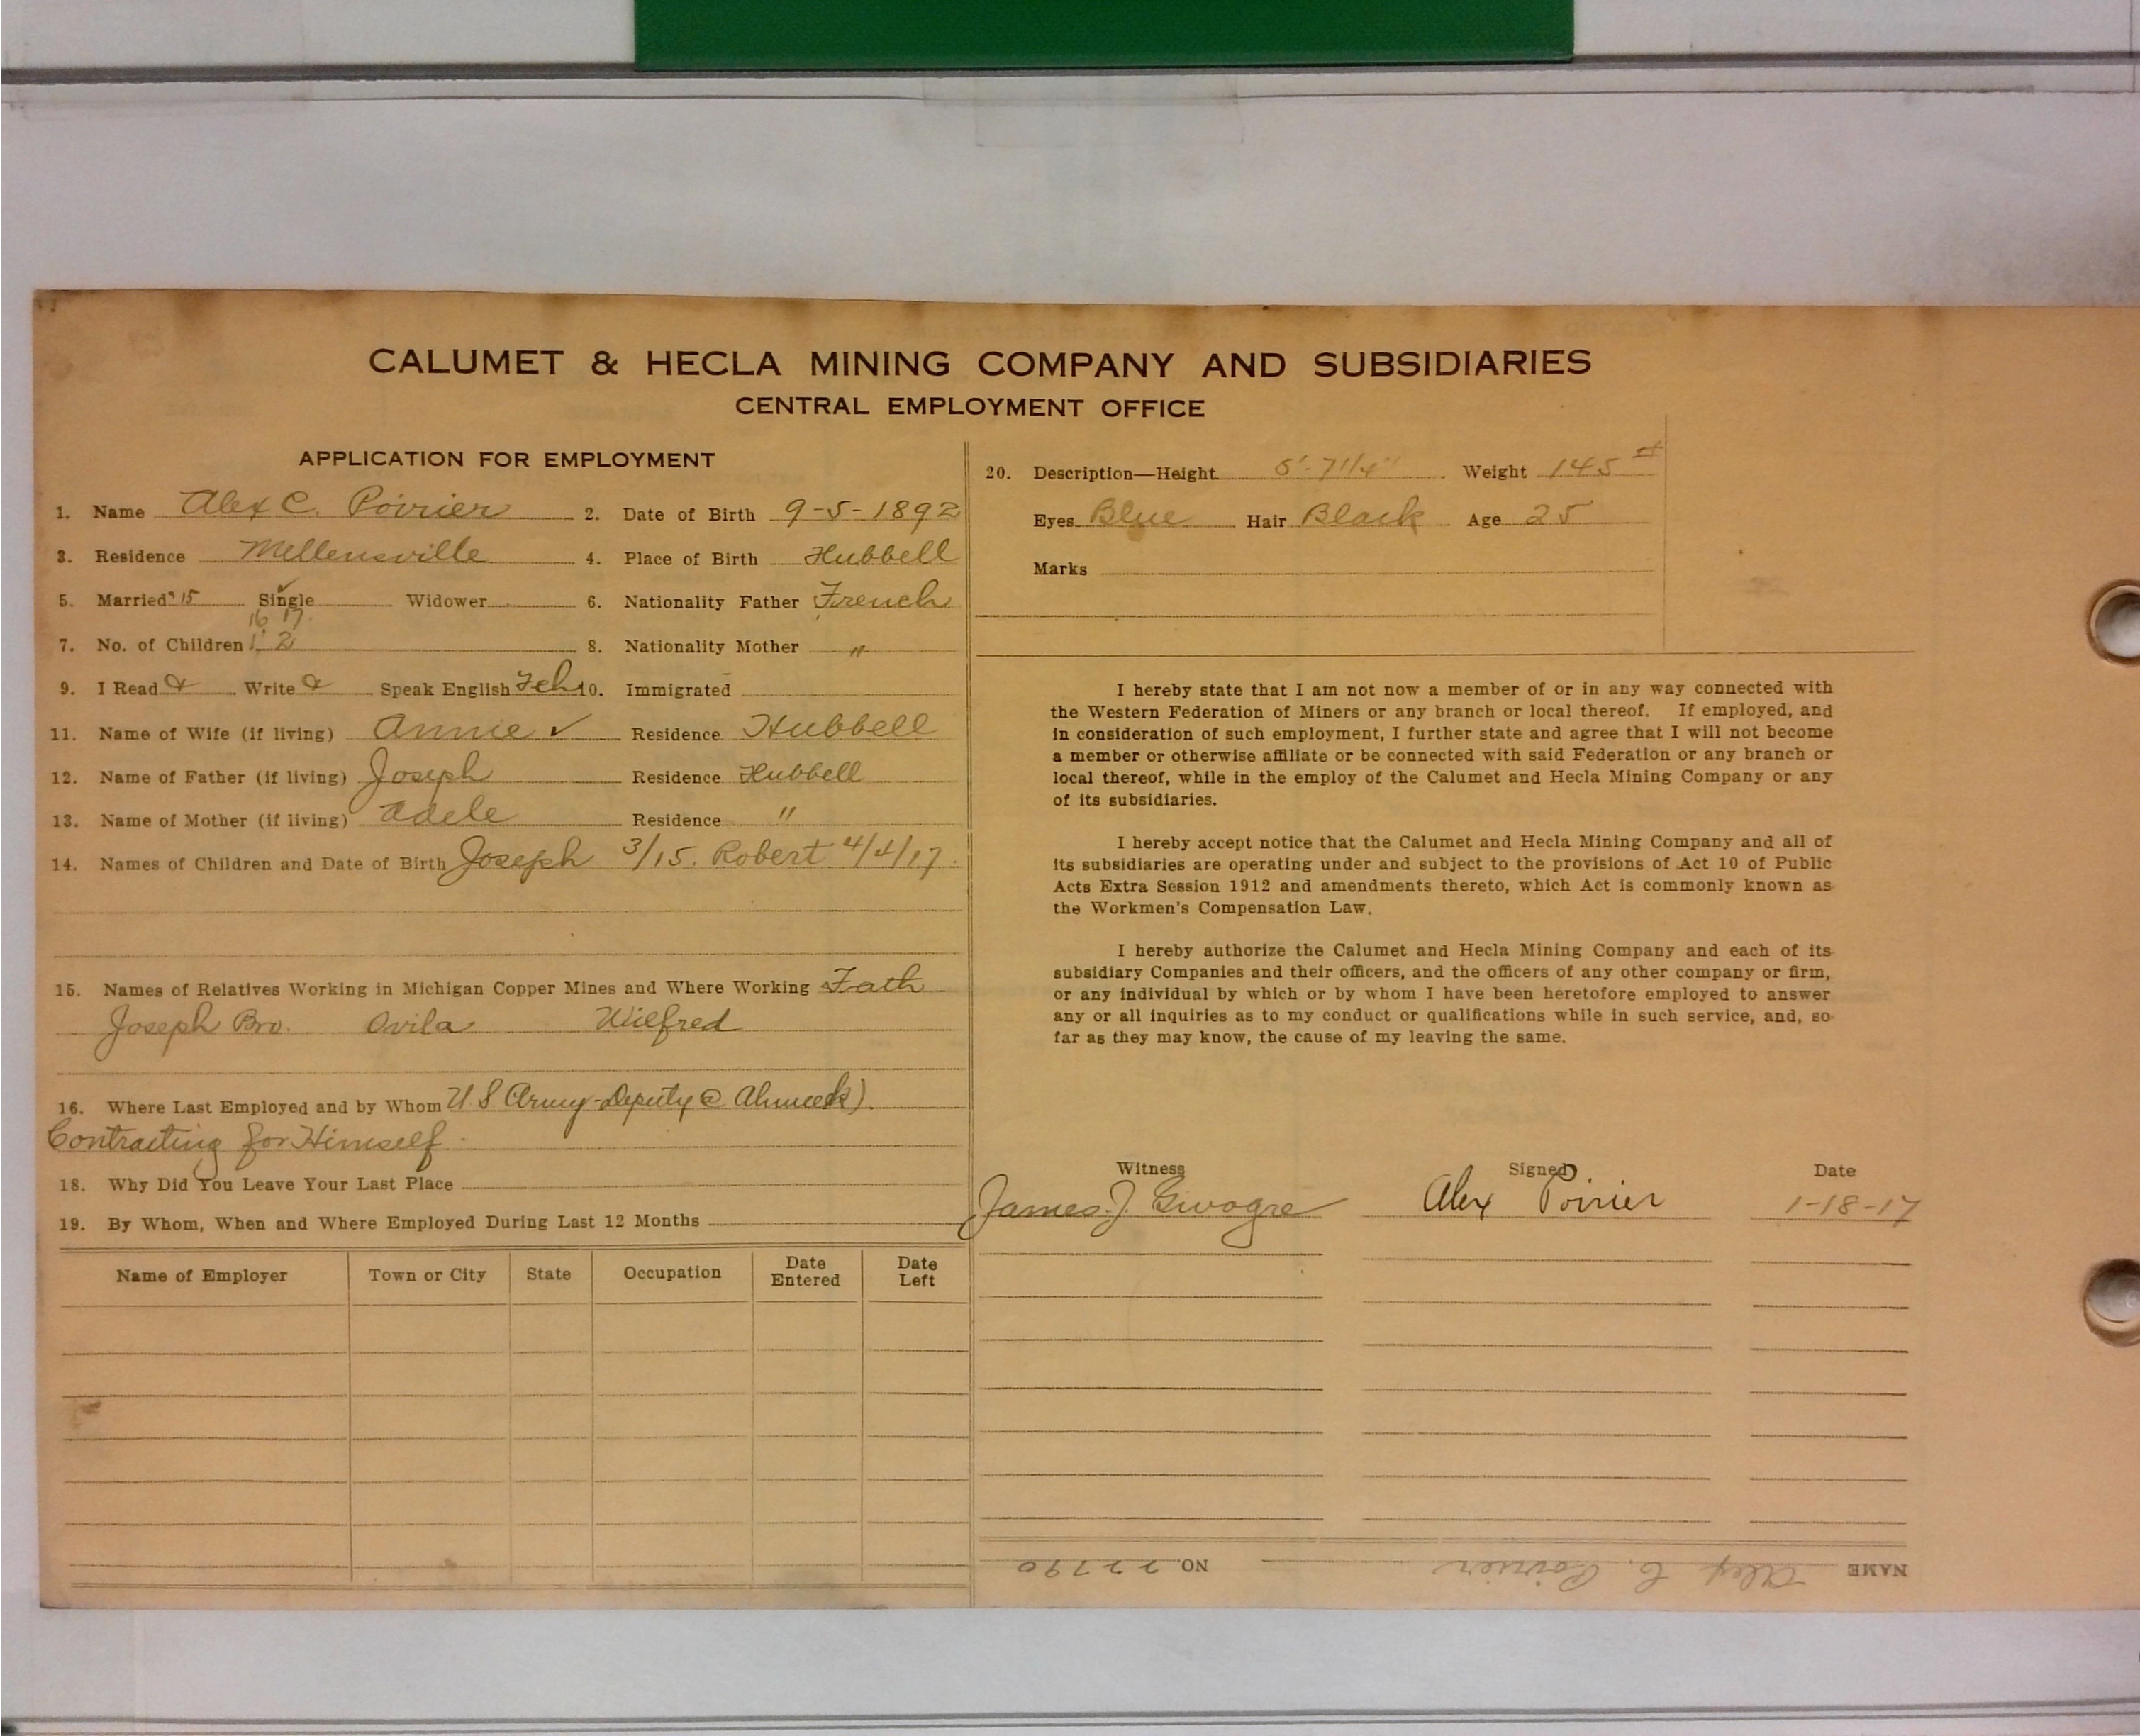 CALUMET & HECLA MINING COMPANY AND SUBSIDIARIES
CENTRAL EMPLOYMENT OFFICE
APPLICATION FOR EMPLOYMENT
1. Name Alex C. Poirier 2. Date of Birth 9-5-1892
3. Residence Mellensville 4. Place of Birth Hubbell
5. Married '15 Single ✓ Widower 6. Nationality Father French
16 17
7. No. of Children 1 2 8. Nationality Mother "
9. I Read & Write & Speak English 10. Immigrated
11. Name of Wife (if living) Annie ✓ Residence Hubbell
12. Name of Father (if living) Joseph Residence Hubbell
13. Name of Mother (if living) Adele Residence "
14. Names of Children and Date of Birth Joseph 3/15. Robert 4/4/17.
15. Names of Relatives Working in Michigan Copper Mines and Where Working Fath
Joseph Bro. Ovila Wilfred
16. Where Last Employed and by Whom U S Army-Deputy @ Ahmeek)
Contracting for Himself.
18. Why Did You Leave Your Last Place
19. By Whom, When and Where Employed During Last 12 Months
Name of Employer Town or City State Occupation Date Entered Date Left
20. Description—Height 5'-7 1/4" Weight 145 #
Eyes Blue Hair Black Age 25
Marks
I hereby state that I am not now a member of or in any way connected with
the Western Federation of Miners or any branch or local thereof. If employed, and
in consideration of such employment, I further state and agree that I will not become
a member or otherwise affiliate or be connected with said Federation or any branch or
local thereof, while in the employ of the Calumet and Hecla Mining Company or any
of its subsidiaries.
I hereby accept notice that the Calumet and Hecla Mining Company and all of
its subsidiaries are operating under and subject to the provisions of Act 10 of Public
Acts Extra Session 1912 and amendments thereto, which Act is commonly known as
the Workmen's Compensation Law.
I hereby authorize the Calumet and Hecla Mining Company and each of its
subsidiary Companies and their officers, and the officers of any other company or firm,
or any individual by which or by whom I have been heretofore employed to answer
any or all inquiries as to my conduct or qualifications while in such service, and, so
far as they may know, the cause of my leaving the same.
Witness Signed Date
James. J. Alex Poirier 1-18-17
NAME Alex C. Poirier NO. 22790